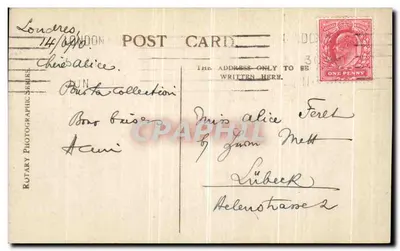 Londres,
14/6/10
LONDON
POST CARD
THE ADDRESS ONLY TO BE
WRITTEN HERE.
ONE PENNY
ROTARY PHOTOGRAPHIC SERIES
Chère Alice.
Pour ta collection
Bons baisers
Miss Alice Feret
by Frau Mett
Lübeck
Helenstrasse 2
CPRPHOTO